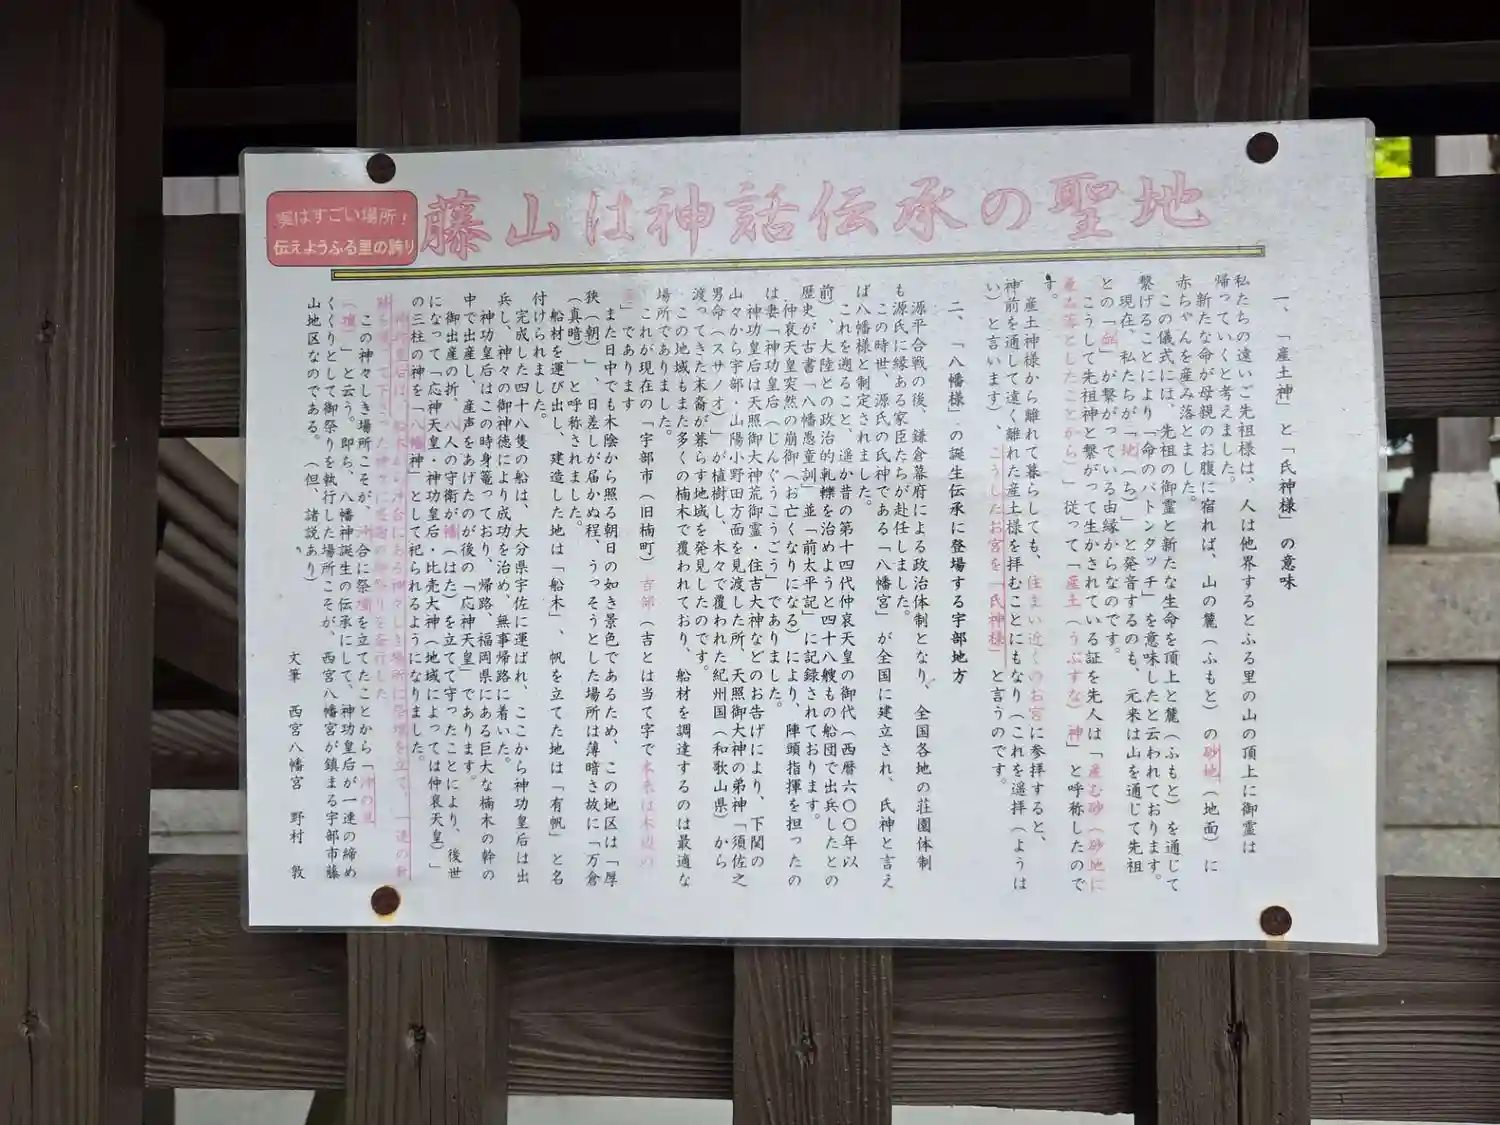 実はすごい場所！
伝えようふる里の誇り
藤山は神話伝承の聖地
一、「産土神」と「氏神様」の意味
私たちの遠いご先祖様は、人は他界するとふる里の山の頂上に御霊は
帰っていくと考えました。
新たな命が母親のお腹に宿れば、山の麓（ふもと）の砂地（地面）に
赤ちゃんを産み落とました。
この儀式には、先祖の御霊と新たな生命を頂上と麓（ふもと）を通じて
繋げることにより「命のバトンタッチ」を意味したと云われております。
現在、私たちが「地（ち）」と発音するのも、元来は山を通じて先祖
との「血」が繋がっている由縁からなのです。
こうして先祖神と繋がって生かされている証を先人は「産む砂（砂地に
産み落としたことから」従って「産土（うぶすな）神」と呼称したので
す。
産土神様から離れて暮らしても、住まい近くのお宮に参拝すると、
神前を通して遠く離れた産土様を拝むことにもなり（これを遥拝（ようは
い）と言います）、こうしたお宮を「氏神様」と言うのです。
二、「八幡様」の誕生伝承に登場する宇部地方
源平合戦の後、鎌倉幕府による政治体制となり、全国各地の荘園体制
も源氏に縁ある家臣たちが赴任しました。
この時世、源氏の氏神である「八幡宮」が全国に建立され、氏神と言え
ば八幡様と制定されました。
これを遡ること、遥か昔の第十四代仲哀天皇の御代（西暦六〇〇年以
前）、大陸との政治的軋轢を治めようと四十八艘もの船団で出兵したとの
歴史が古書「八幡愚童訓」並「前太平記」に記録されております。
仲哀天皇突然の崩御（お亡くなりになる）により、陣頭指揮を担ったの
は妻「神功皇后（じんぐうこうごう」でありました。
神功皇后は天照御大神荒御霊・住吉大神などのお告げにより、下関の
山々から宇部・山陽小野田方面を見渡した所、天照御大神の弟神「須佐之
男命（スサノオ）」が植樹し、木々で覆われた紀州国（和歌山県）から
渡ってきた末裔が暮らす地域を発見したのです。
この地域もまた多くの楠木で覆われており、船材を調達するのは最適な
場所でありました。
これが現在の「宇部市（旧楠町）吉部（吉とは当て字で本来は木辺の
」であります
また日中でも木陰から照る朝日の如き景色であるため、この地区は「厚
狭（朝）」、日差しが届かぬ程、うっそうとした場所は薄暗さ故に「万倉
（真暗）」と呼称されました。
船材を運び出し、建造した地は「船木」、帆を立てた地は「有帆」と名
付けられました。
完成した四十八隻の船は、大分県宇佐に運ばれ、ここから神功皇后は出
兵し、神々の御神徳により成功を治め、無事帰路に着いた。
神功皇后はこの時身篭っており、帰路、福岡県にある巨大な楠木の幹の
中で出産し、産声をあげたのが後の「応神天皇」であります。
御出産の折、八人の守衛が幡（はた）を立てて守ったことにより、後世
になって「応神天皇・神功皇后・比売大神（地域によっては仲哀天皇）」
の三柱の神を「八幡神」として祀られるようになりました。
神功皇后は、船木から沖合にある神々しき場所に祭壇を立て、一連の航
この神々しき場所こそが、沖合に祭壇を立てたことから「沖の
（壇）」と云う。即ち、八幡神誕生の伝承にして、神功皇后が一連の締め
くくりとして御祭りを執行した場所こそが、西宮八幡宮が鎮まる宇部市藤
山地区なのである。（但、諸説あり）
文筆　西宮八幡宮　野村　敦